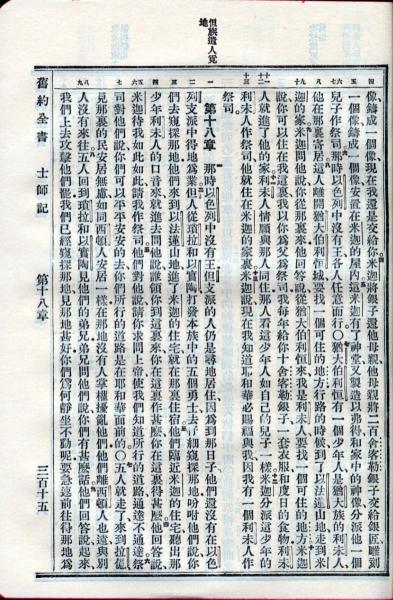 但族遣人覓地
四 五 六七 八 九 十 十一十二 十三 一 二 三 四 五 六 七 八九
像、鑄成一個像、現在我還是交給你米迦將銀子還他母親他母親將二百舍客勒銀子交給銀匠、雕刻
一個像、鑄成一個像、安置在米迦的屋內這米迦有了神堂又製造以弗和家中的神像分派他一個
兒子作祭司那時以色列中沒有王各人任意而行○猶大伯利恆有一個少年人是猶大族的利未人
他在那裏寄居這人離開猶大伯利恆城要找一個可住的地方行路的時候到了以法蓮山地走到米
迦的家米迦問他說你從那裏來他回答說從猶大伯利恆來我是利未人要找一個可住的地方米迦
說你可以住在我這裏我以你為父為祭司我每年給你十舍客勒銀子、一套衣服和度日的食物利未
人就進了他的家利未人情願與那人同住那人看這少年人如自己的兒子一樣米迦分派這少年的
利未人作祭司他就住在米迦的家裏米迦說現在我知道耶和華必賜福與我因我有一個利未人作
祭司。
第十八章 那時以色列中沒有王但支派的人仍是尋地居住因為到那日子他們還沒有在以色
列支派中得地為業但人從瑣拉和以實陶打發本族中的五個勇士去仔細窺探那地吩咐他們說你
們去窺探那地他們來到以法蓮山地進了米迦的住宅就在那裏住宿他們臨近米迦的住宅聽出那
少年利未人的口音來就進去問他說誰領你到這裏來你在這裏作甚麼你在這裏得甚麼他回答說
米迦待我如此如此請我作祭司他們對他說請你求問上帝使我們知道所行的道路通達不通達祭
司對他們說你們可以平平安安的去你們所行的道路是在耶和華面前的○五人就走了來到拉億
見那裏的民安居無慮如同西頓人安居一樣在那地沒有人掌權擾亂他們他們離西頓人也遠與別
人沒有來往五人回到瑣拉和以實陶見他們的弟兄弟兄問他們說你們有甚麼話他們回答說起來
我們上去攻擊他們罷我們已經窺探那地見那地甚好你們為何靜坐不動呢要急速前往得那地為
舊約全書 士師記 第十八章 三百十五